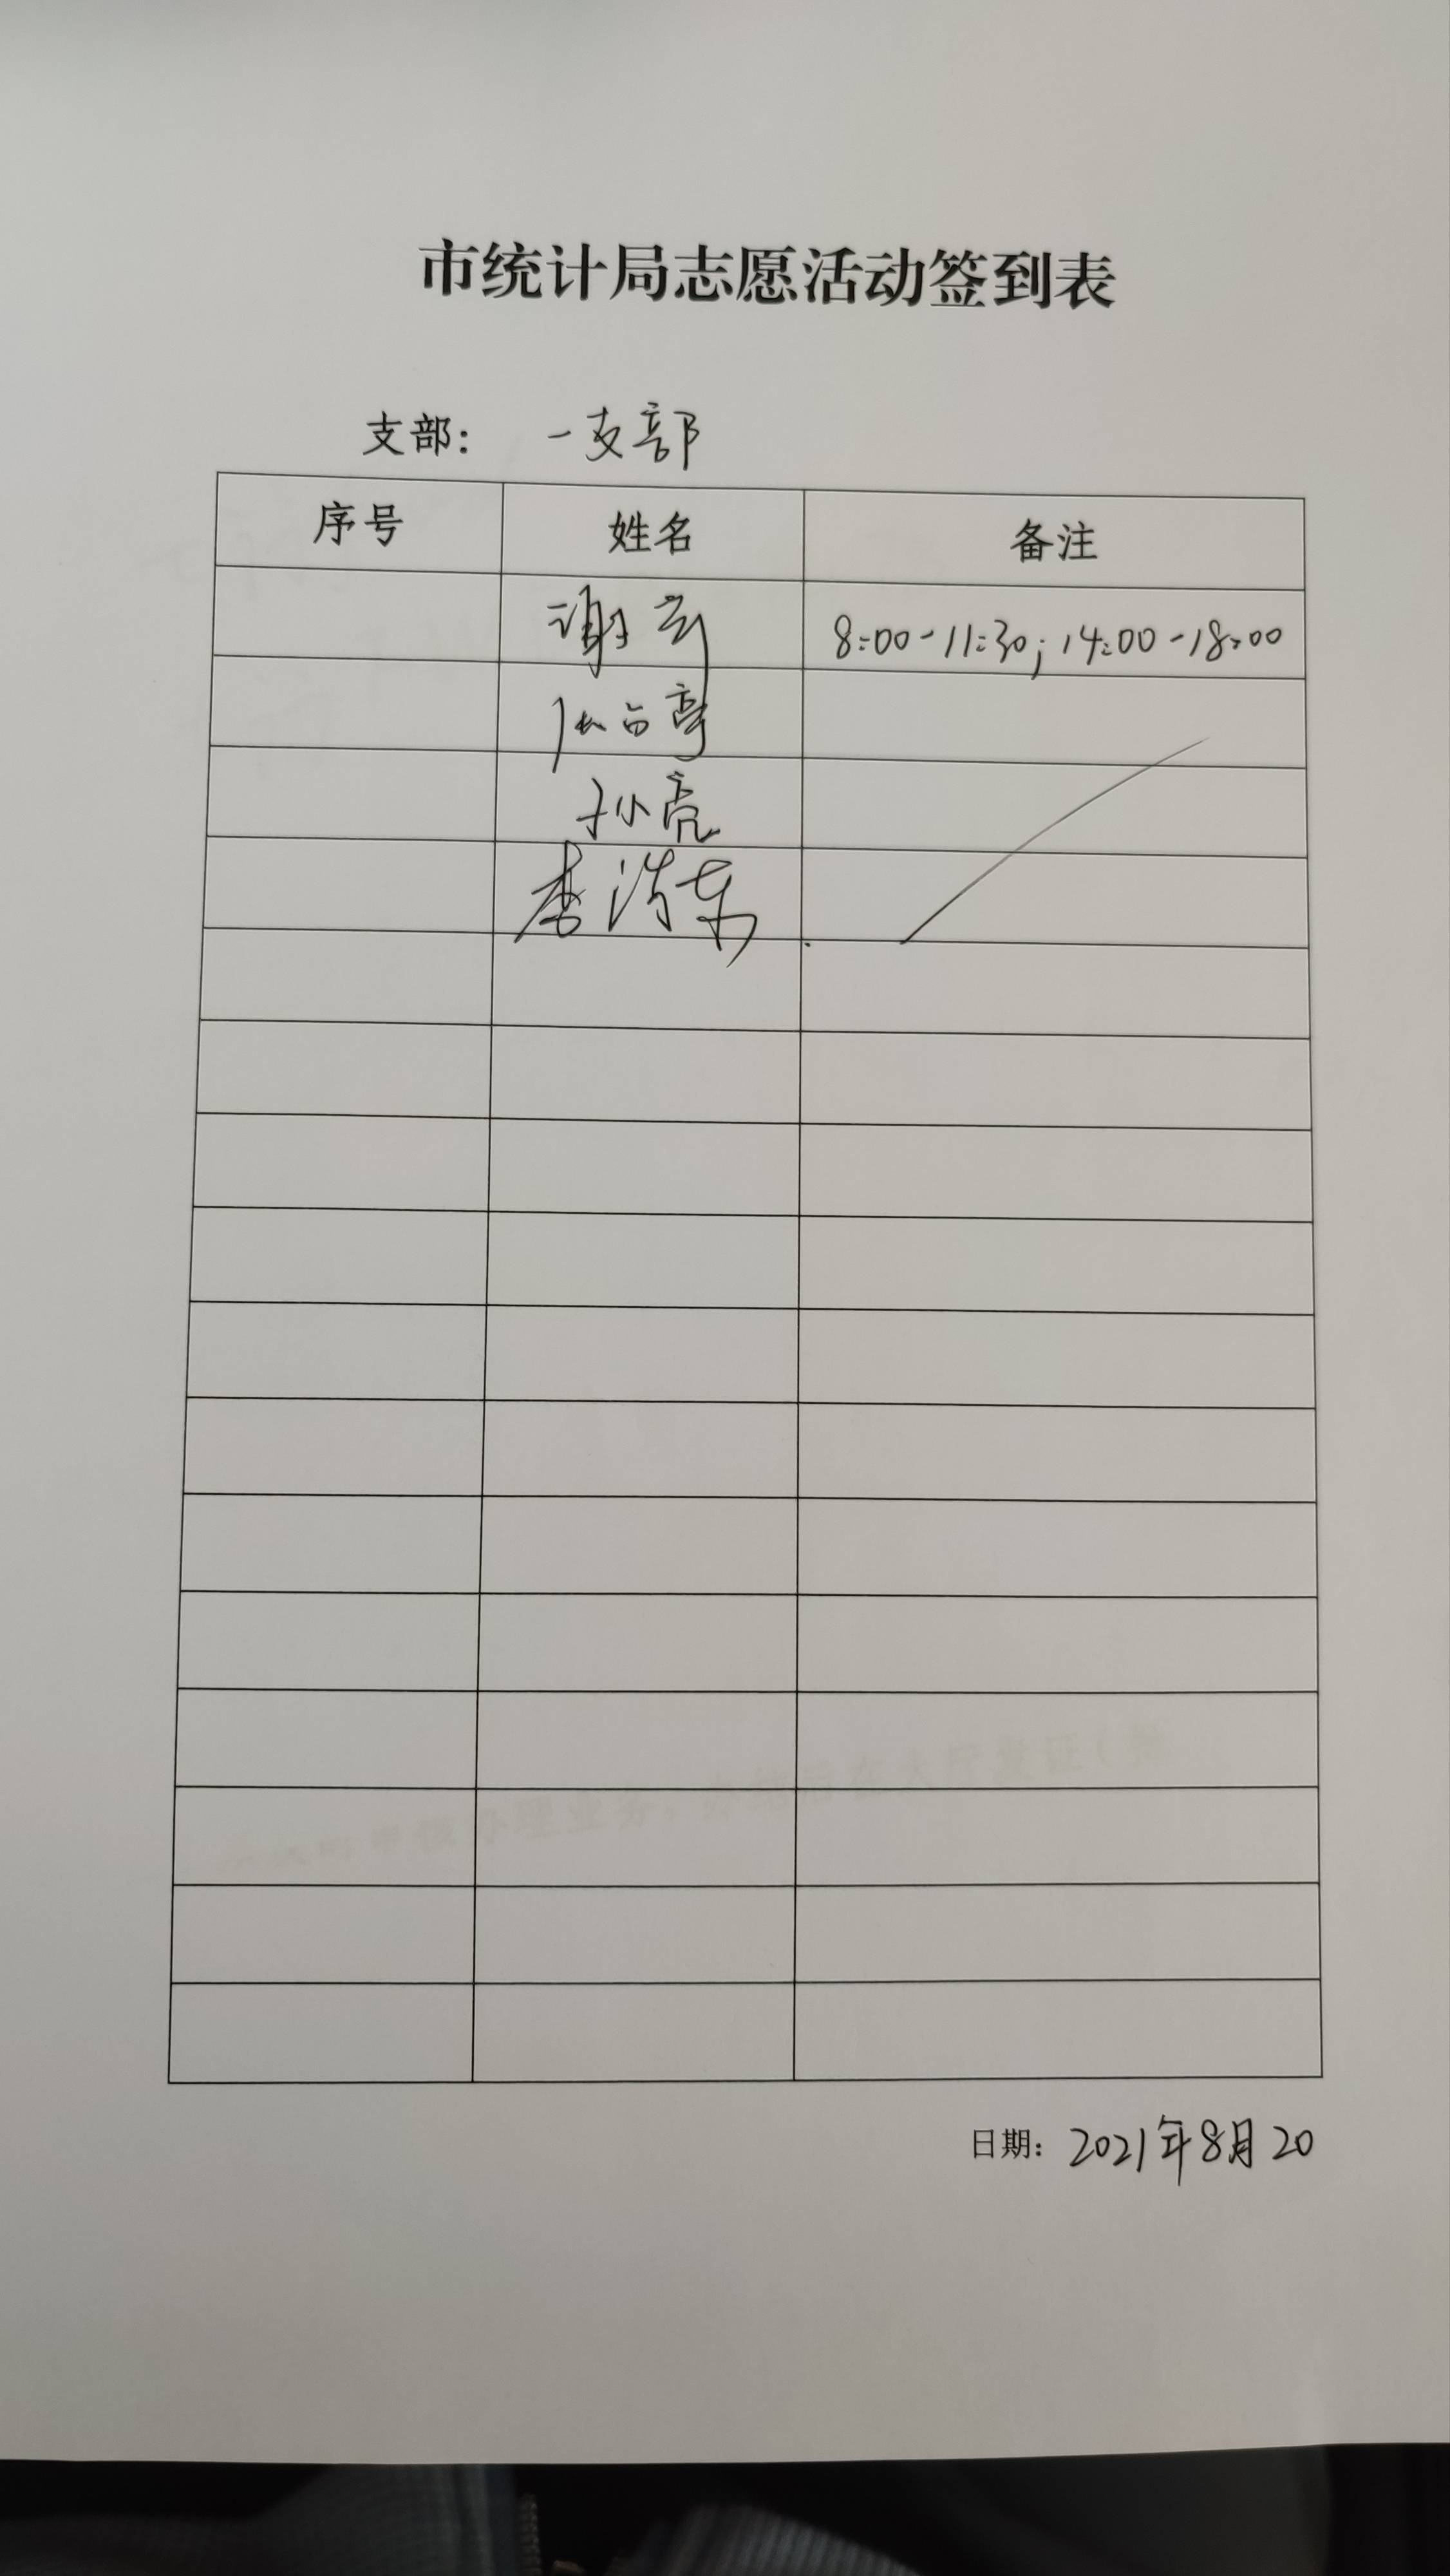 市统计局志愿活动签到表
支部： 一支部
序号 姓名 备注
谢 8:00-11:30; 14:00-18:00
孙亮
李浩东
日期：2021年8月20